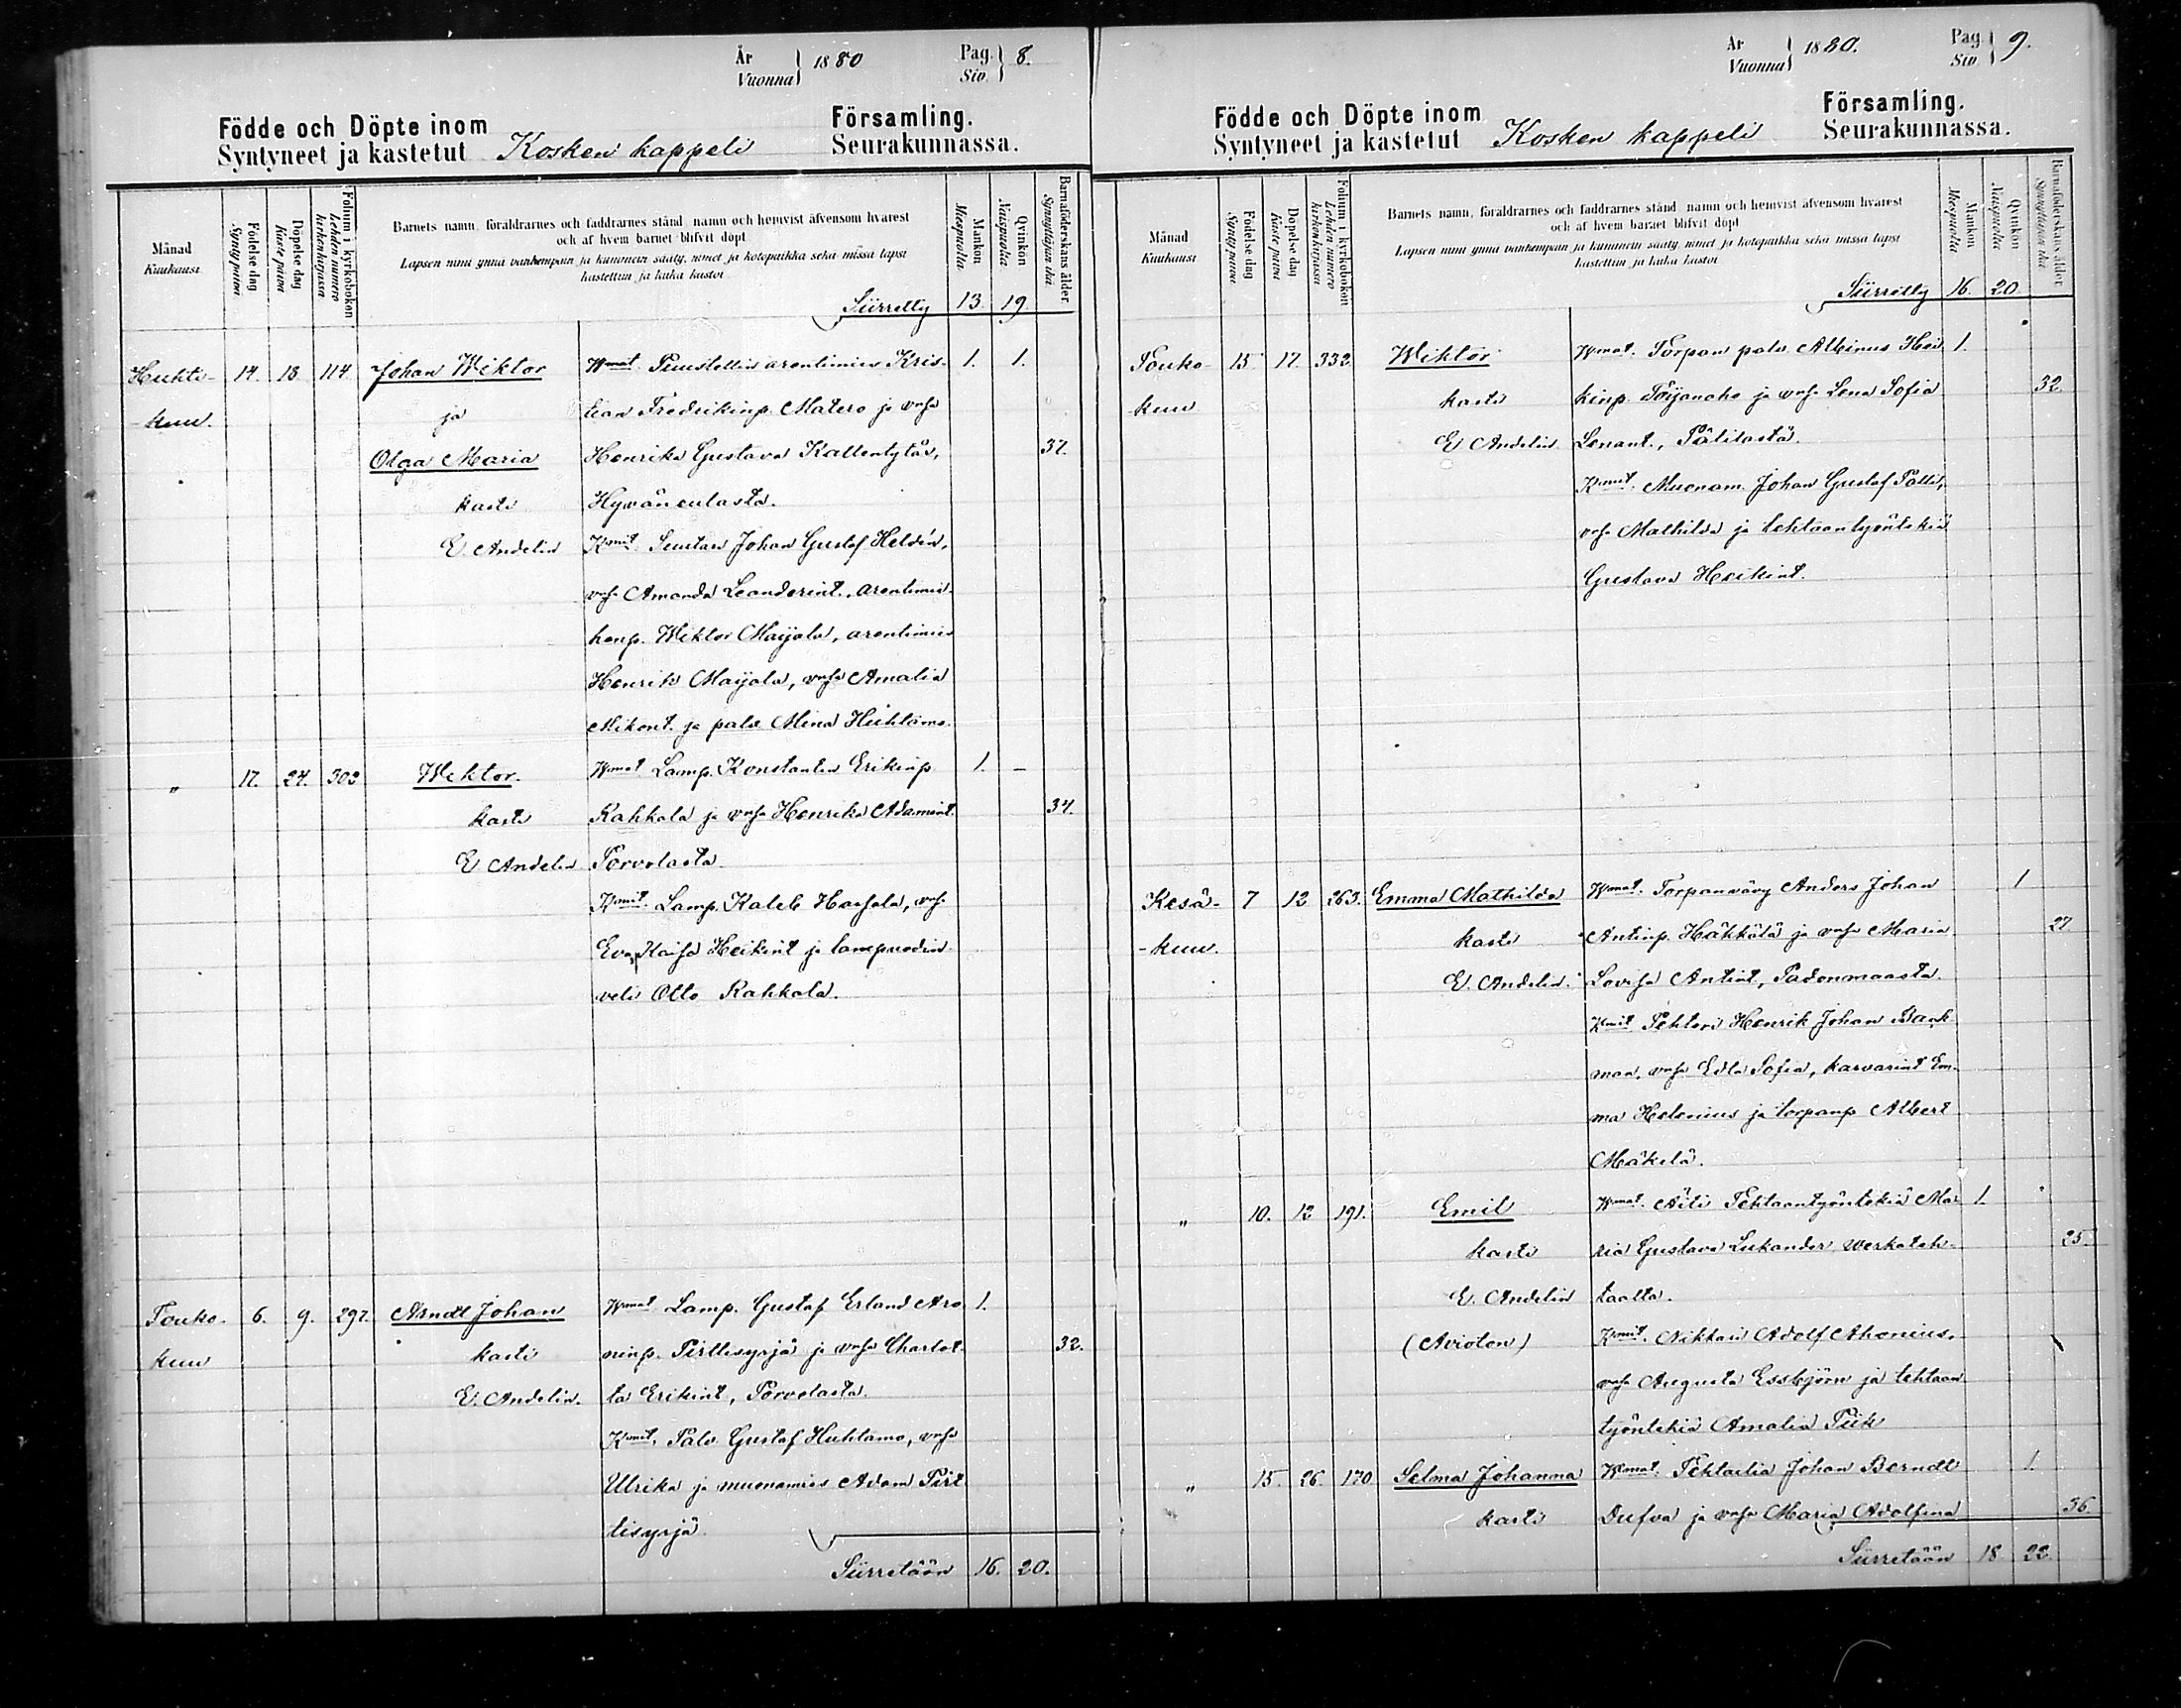 År
Vuonna
1880
Pag.
Siv.
8.
Födde och Döpte inom
Syntyneet ja kastetut
Kosken kappeli
Församling.
Seurakunnassa.
Månad
Kuukausi
Födelse dag
Syntypäivä
Döpelse dag
Kaste päivä
Folium i kyrkobokon
Lehden numero
kirkonkirjassa
Barnets namn, föräldrarnes och faddrarnes stånd, namn och hemvist äfvensom hvarest
och af hvem barnet blifvit döpt
Lapsen nimi ynnä vanhempain ja kummein sääty, nimet ja kotopaikka sekä missä lapsi
kastettiin ja kuka kastoi
Mankön
Miespuolia
Qvinkön
Naispuolia
Barnaföderskans ålder
Synnyttäjän ikä
Siirretty 13. 19.
Huhti- 14. 18. 114 Johan Wiktor Wmat. Puustellin arentimies Kris- 1. 1.
-kuu. ja tian Fredrikinp. Matero ja vaho
Olga Maria Henrika Gustava Kallentytär, 37.
kasti Hyväneulasta.
E. Andelin Kmit. Suutari Johan Gustaf Heldén,
vaho Amanda Leanderint., arentimie-
henp. Wiktor Maijala, arentimies
Henrik Maijala, vaho Amalia
Mikont. ja palv. Mina Huhtamo.
„ 17. 24. 303 Wiktor. Wmat Lamp. Konstantin Erikinp. 1. –
kasti Rahkola ja vaho Henrika Adamint. 34.
E Andelin Porvolasta
Kmit. Lamp. Kaleb Harjala, vaho
Eva Kaisa Heikint ja lampuodin
veli Otto Rahkola.
Touko- 6. 9. 297. Arndt Johan Wmat Lamp. Gustaf Erland Aro 1.
kuu kasti ninp. Pirttisyrjä ja vaho Charlot- 32.
E. Andelin. ta Erikint, Porvolasta.
Kmit. Palv Gustaf Huhtamo, vaho
Ulrika ja muonamies Adam Pirt
tisyrjä
Siirretään 16. 20.
År
Vuonna
1880.
Pag.
Siv.
9.
Födde och Döpte inom
Syntyneet ja kastetut
Kosken kappeli
Församling.
Seurakunnassa.
Månad
Kuukausi
Födelse dag
Syntypäivä
Döpelse dag
Kaste päivä
Folium i kyrkobokon
Lehden numero
kirkonkirjassa
Barnets namn, föräldrarnes och faddrarnes stånd, namn och hemvist äfvensom hvarest
och af hvem barnet blifvit döpt
Lapsen nimi ynnä vanhempain ja kummein sääty, nimet ja kotopaikka sekä missä lapsi
kastettiin ja kuka kastoi
Mankön
Miespuolia
Qvinkön
Naispuolia
Barnaföderskans ålder
Synnyttäjän ikä
Siirretty 16. 20.
Touko- 15 17. 332. Wiktor Wmat. Torpan palv Albinus Hei 1.
kuu kasti kinp. Töijönoho ja vaho Lena Sofia 32.
E Andelin Lenant., Pätilästä.
Kmit. Muonam. Johan Gustaf Palli,
vaho Mathilda ja tehtaantyöntekiä
Gustava Heikint.
Kesä- 7 12 263. Emma Mathilda Wmat. Torpanvävy Anders Johan 1
-kuu. kasti Antinp. Häkkälä ja vaho Maria 27
E. Andelin. Lovisa Antint, Padonmaasta.
Kmit Tehtori Henrik Johan Back-
man, vaho Edla Sofia, karvarint Em-
ma Helenius ja torpanp Albert
Mäkelä.
„ 10. 12 191. Emil Wmat. Äiti Tehtaantyöntekiä Ma- 1.
kasti ria Gustava Lukander Werkateh- 25.
E. Andelin taalta.
(Avioton) Kmit. Nikkari Adolf Ahonius,
vaho Augusta Essbjörn ja tehtaan
työntekiä Amalia Piik
„ 15. 26. 170 Selma Johanna Wmat. Tehtailia Johan Berndt 1.
kasti Dufva ja vaho Maria Adolfina 36.
Siirretään 18 22.